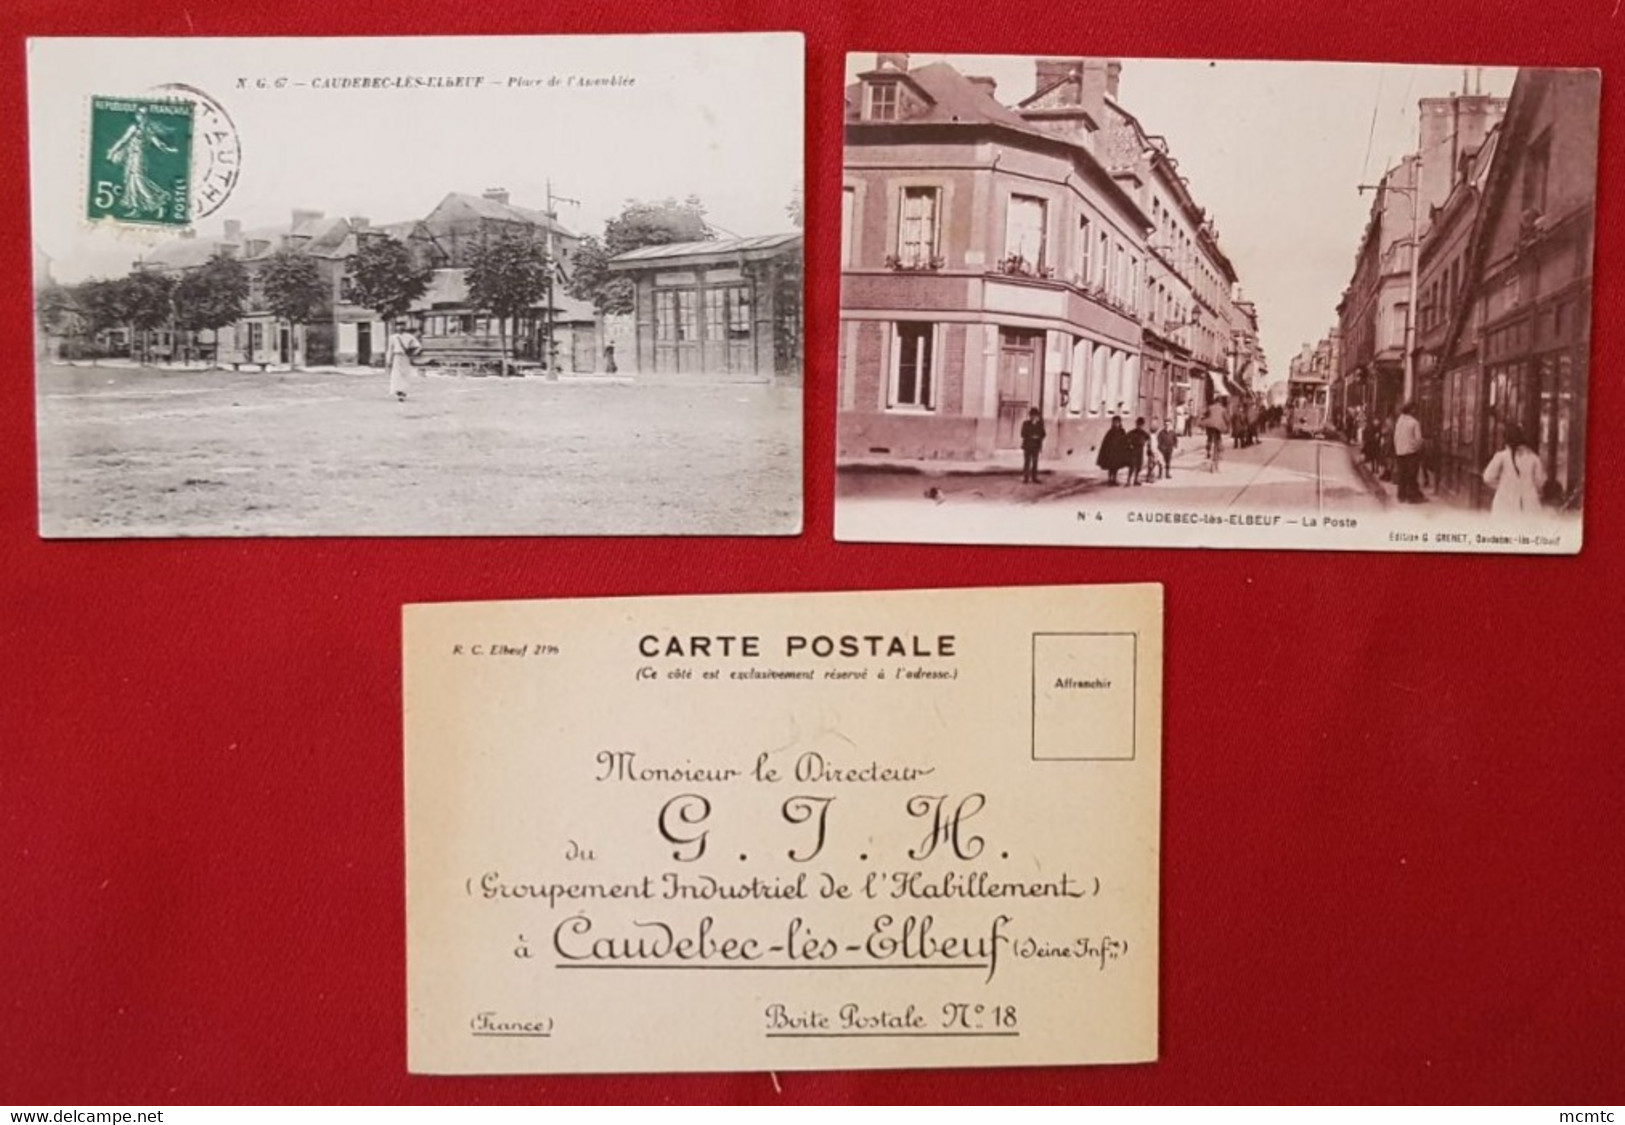 N. G. 67 — CAUDEBEC-LÈS-ELBEUF — Place de l'Assemblée
REPUBLIQUE FRANÇAISE
5c
POSTES
T-AUTHO
N° 4 CAUDEBEC-lès-ELBEUF — La Poste
Edition G. GRENET, Caudebec-lès-Elbeuf
R. C. Elbeuf 2196
CARTE POSTALE
(Ce côté est exclusivement réservé à l'adresse.)
Affranchir
Monsieur le Directeur
du G. I. H.
(Groupement Industriel de l'Habillement)
à Caudebec-lès-Elbeuf (Seine-Infre)
(France) Boite Postale N° 18
delcampe.net
mcmtc